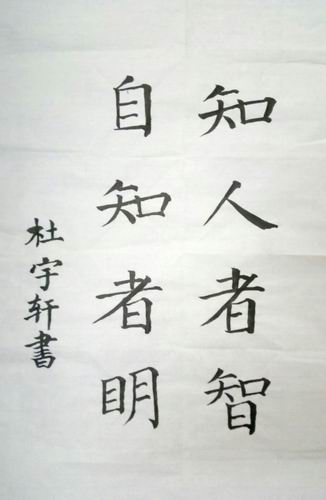 知人者智
自知者明
杜宇轩書